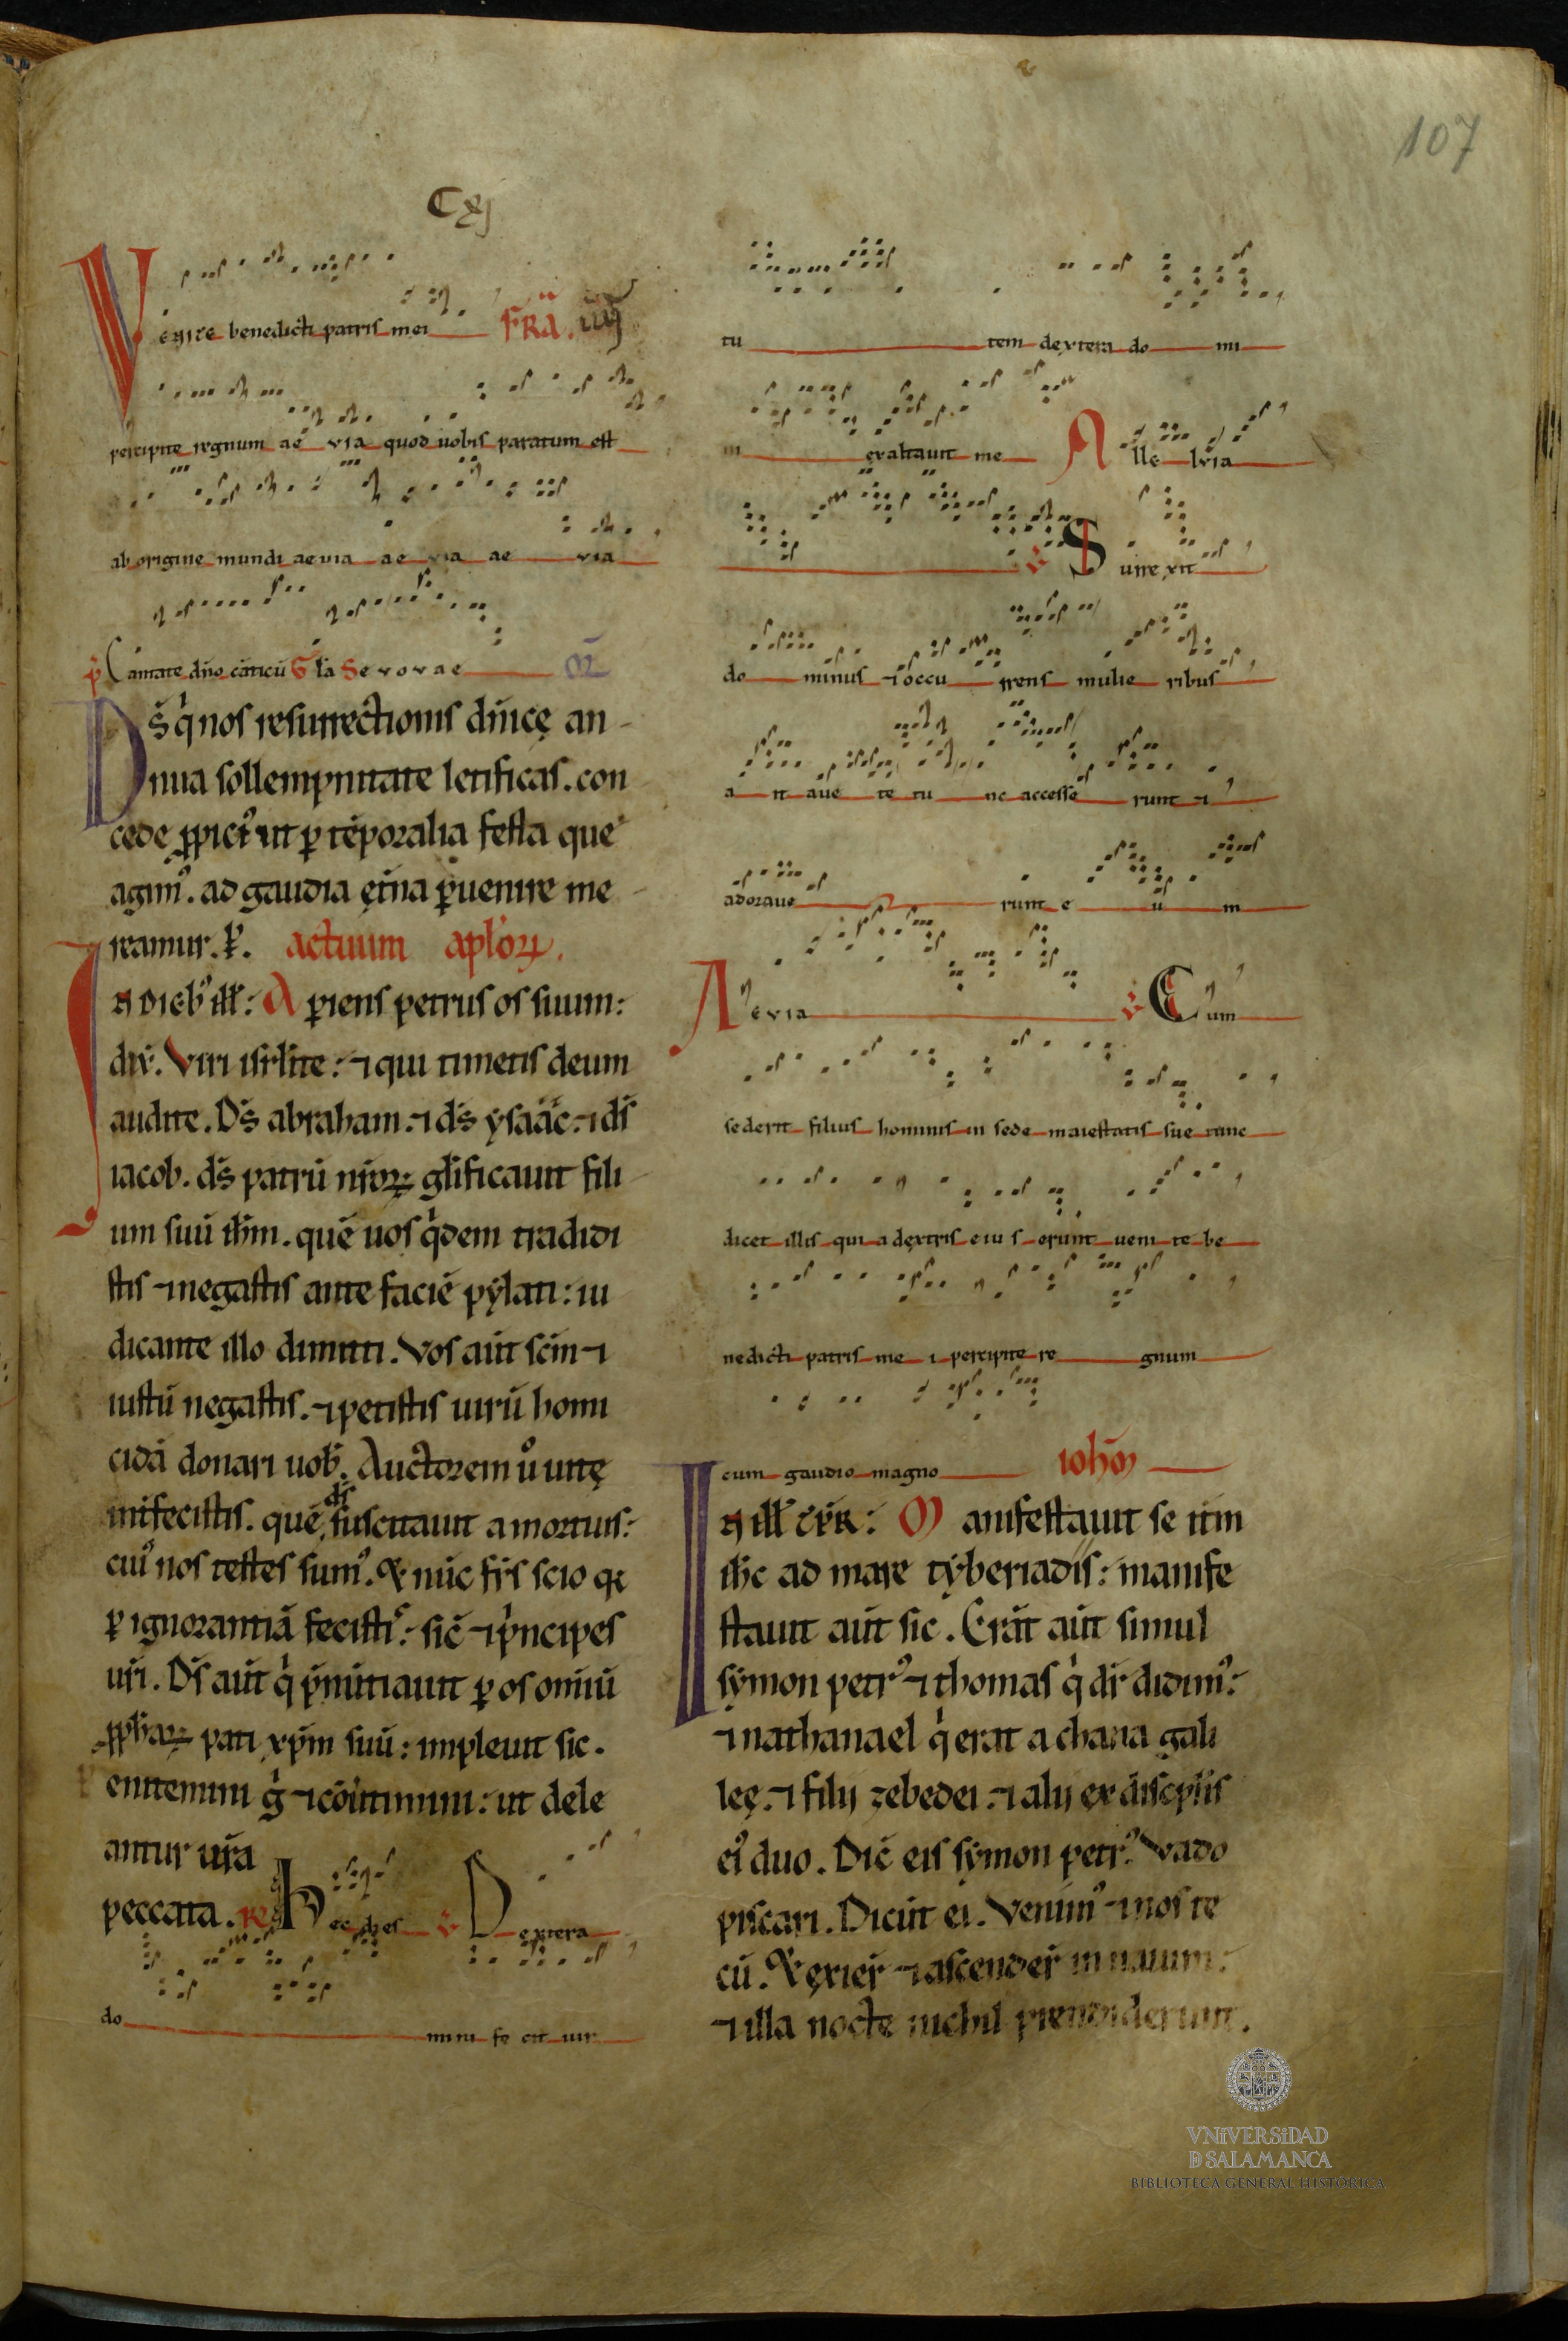 107
Cxj
Venite benedicti patris mei FRĀ. iiij
percipite regnum ae via quod uobis paratum est
ab origine mundi aeuia ae via ae via
p̄ Cantate dn̄o cāticū Gl̄a Sevovae
Ds̄ q̇ nos resurrectionis dn̄icę an
nua sollempnitate letificas. con
cede ꝓpicı᷒ ut ꝑ tēporalia festa que
agim᷒. ad gaudia ęt̄na ꝑuenire me
reamur. ꝑ. actuum apl̄oꝝ.
In dieb᷒ ill̄: Aꝑiens petrus os suum:
dix̄. Viri isrl̄ite: ⁊ qui timetis deum
audite. Ds̄ abraham. ⁊ ds̄ ysaac. ⁊ ds̄
iacob. ds̄ patrū nr̄oꝝ gl̄ificauit fili
um suū ih̄m. quē uos q̇dem tradidi
stis ⁊ negastis ante faciē pylati: iu
dicante illo dimitti. Vos aūt sc̄m ⁊
iustū negastis. ⁊ petistis uirū homi
cidā donari uob̄. Auctorem u̇ uitę
int̄fecistis. quē ds̄ suscitauit a mortuis:
cui᷒ nos testes sum᷒. Et nūc fr̄s scio qꝛ
ꝑ ignorantiā fecisti᷒. sic̄ ⁊ pⁱncipes
ur̄i. Ds̄ aūt q̇ p̄nūtiauit ꝑ os om̄iū
ꝓphaꝝ pati xp̄m suū: impleuit sic.
Penitemini g̊ ⁊ cōūtimini: ut dele
antur ur̄a
peccata. ℟ Hec dies ℣ Dextera
do mini fe cit uir
tu tem dextera do mi
ni exaltauit me Alle lvia
℣ Surrexit
do minus ⁊ occu rrens mulie ribus
a it aue te tu nc accesse runt ⁊
adoraue runt e u m
Aevia ℣ Cum
sederit filius hominis in sede maiestatis sue tunc
dicet illis qui a dextris eiu s erunt ueni te be
nedicti patris me i percipite re gnum
cum gaudio magno ioh̄m
In ill̄ tp̄r: Manifestauit se it̄m
ih̄c ad mare tyberiadis: manife
stauit aūt sic. Erāt aūt simul
symon petr᷒ ⁊ thomas q̇ dr̄ didim᷒:
⁊ nathanael q̇ erat a chana gali
leę. ⁊ filij zebedei. ⁊ alij ex discipl̄is
ei᷒ duo. Dic̄ eis symon petr᷒. Vado
piscari. Dicūt ei. Venim᷒ ⁊ nos te
cū. Et exier̄ ⁊ ascender̄ in nauim:
⁊ illa nocte nichil prendiderunt.
VNIVERSIDAD
D SALAMANCA
BIBLIOTECA GENERAL HISTÓRICA